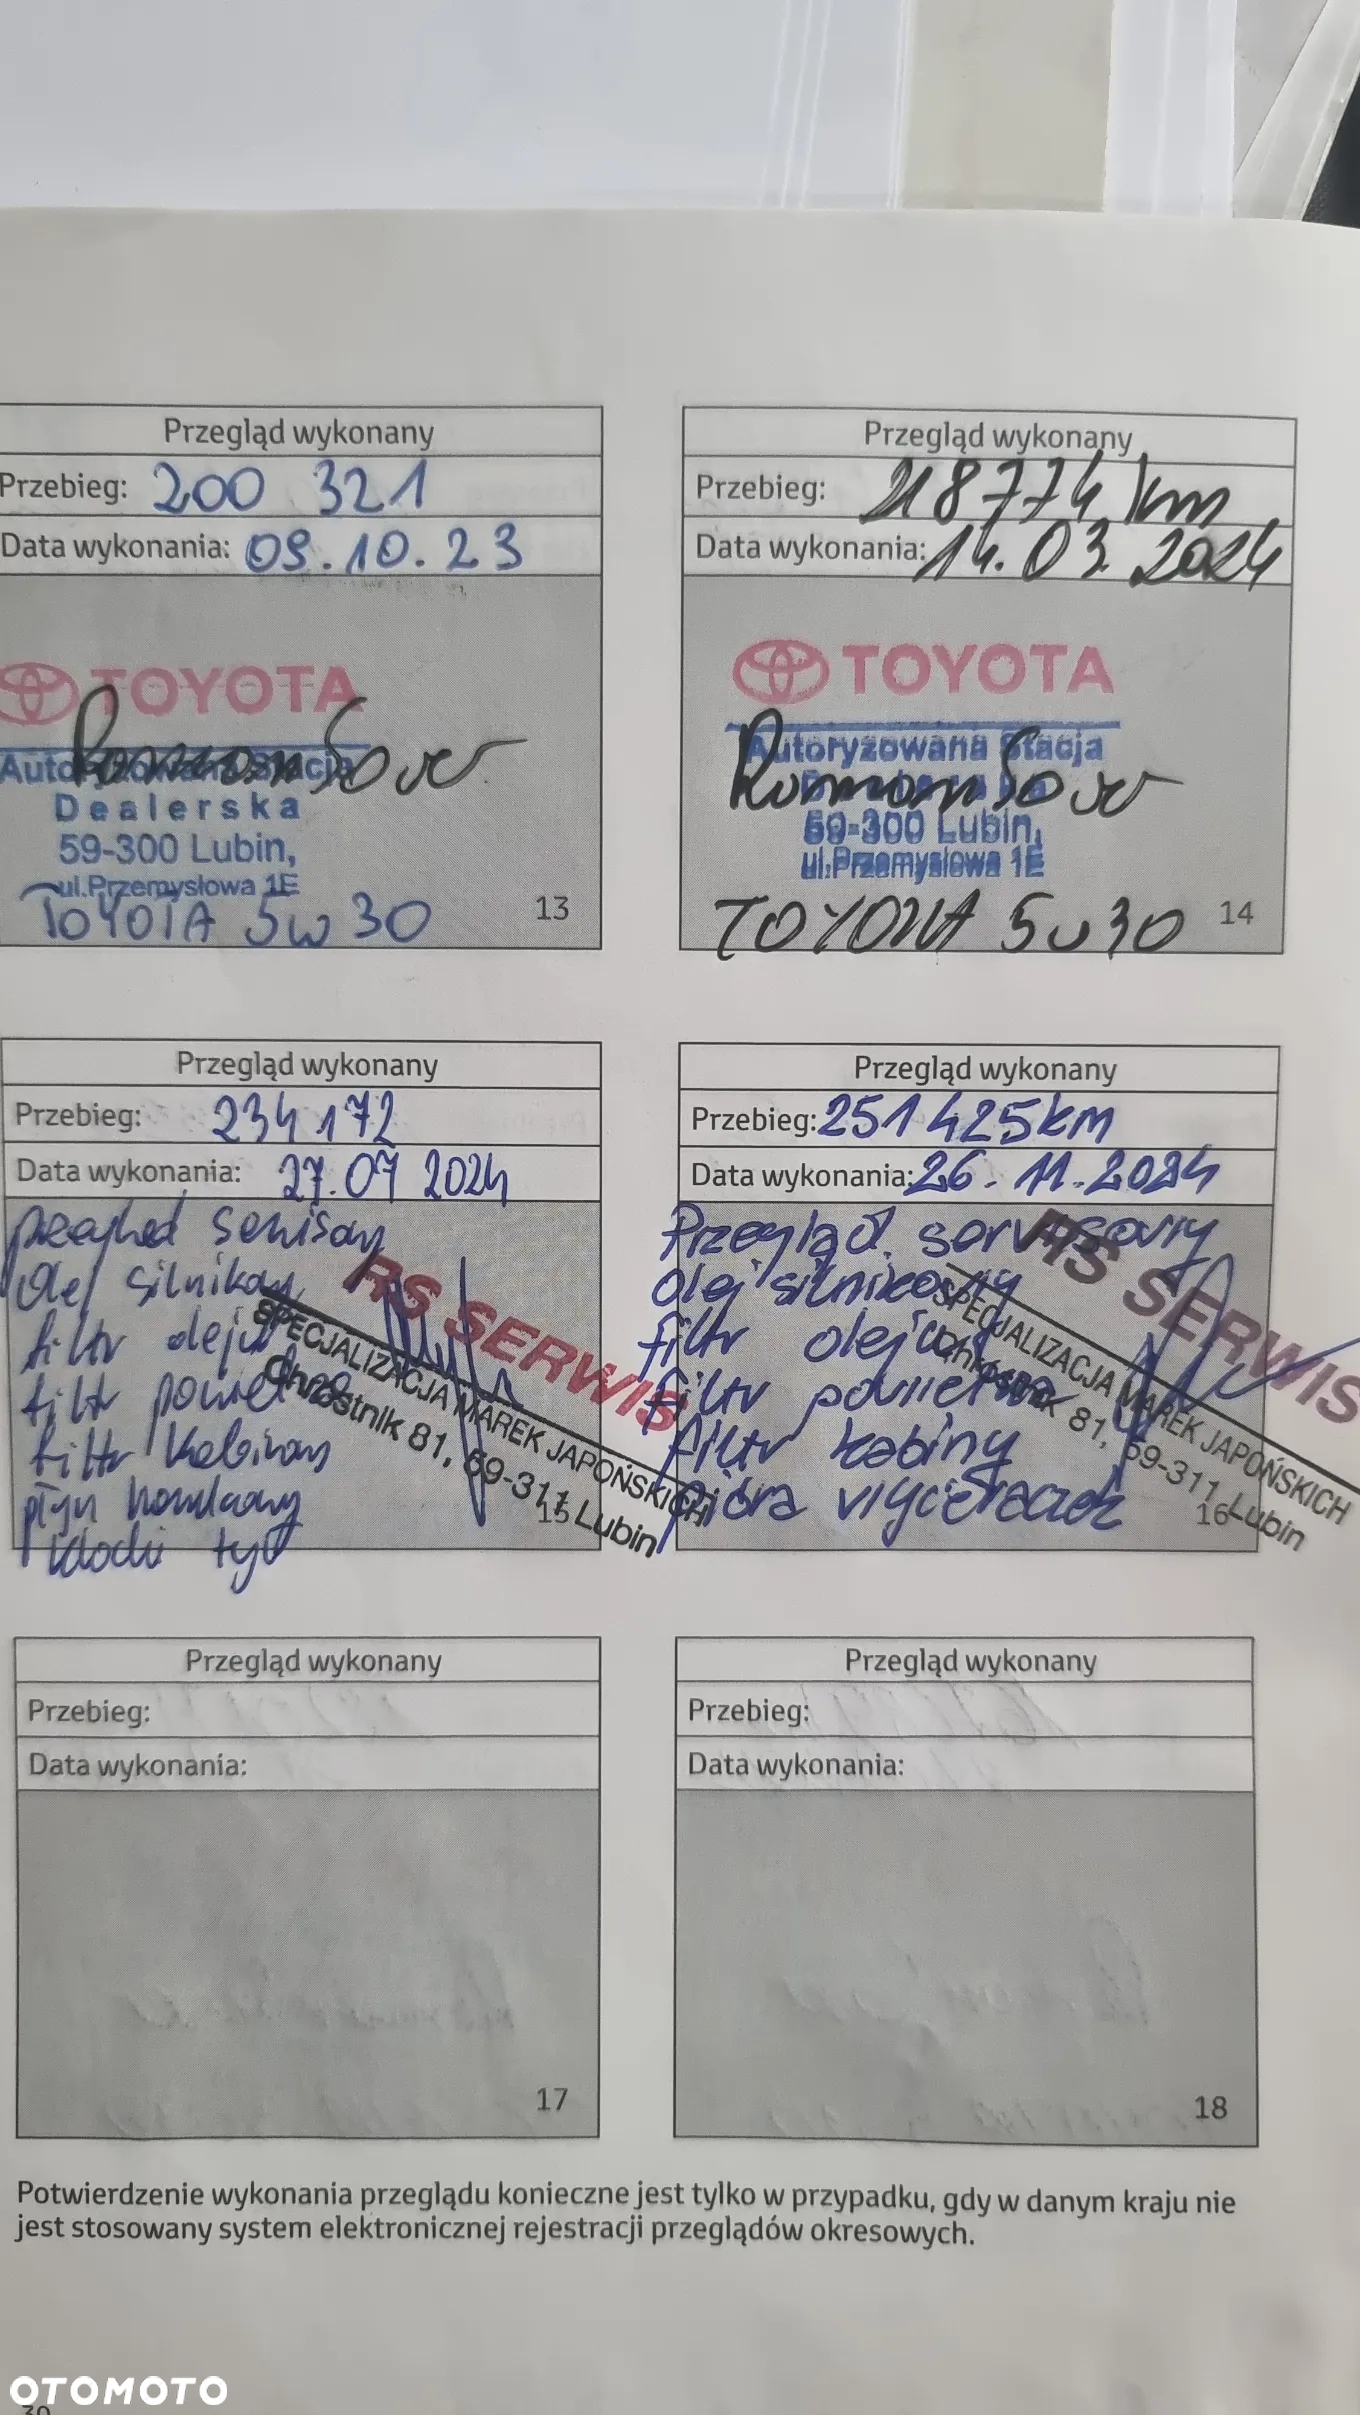 Przegląd wykonany
Przebieg: 200 321
Data wykonania: 09.10.23
TOYOTA
Autoryzowana Stacja
Dealerska
59-300 Lubin,
ul.Przemysłowa 1E
TOYOTA 5W30
13
Przegląd wykonany
Przebieg: 218774 km
Data wykonania: 14.03.2024
TOYOTA
Autoryzowana Stacja
59-300 Lubin,
ul.Przemysłowa 1E
TOYOTA 5W30
14
Przegląd wykonany
Przebieg: 234172
Data wykonania: 27.07 2024
olej silnikowy
filtr oleju
filtr powietrza
filtr kabinowy
płyn hamulcowy
klocki tył
RS SERWIS
SPECJALIZACJA MAREK JAPOŃSKICH
Chróstnik 81, 59-311 Lubin
15
Przegląd wykonany
Przebieg: 251 425km
Data wykonania: 26.11.2024
Przegląd serwisowy
olej silnikowy
filtr oleju
filtr powietrza
filtr kabiny
pióra wycieraczek
RS SERWIS
SPECJALIZACJA MAREK JAPOŃSKICH
Chróstnik 81, 59-311 Lubin
16
Przegląd wykonany
Przebieg:
Data wykonania:
17
Przegląd wykonany
Przebieg:
Data wykonania:
18
Potwierdzenie wykonania przeglądu konieczne jest tylko w przypadku, gdy w danym kraju nie
jest stosowany system elektronicznej rejestracji przeglądów okresowych.
OTOMOTO